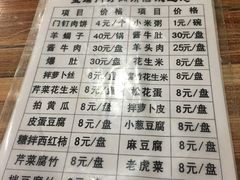 项目 价格 项目 价格
门钉肉饼 4元/个 小米粥 1元/碗
羊蝎子 40元/锅 酱牛肉 30元/盘
酱牛肉 30元/盘 羊头肉 25元/盘
爆肚 30元/盘 花生米 8元/盘
拌萝卜丝 8元/盘 花生米 8元/盘
芹菜花生米 8元/盘 松花蛋 8元/盘
拍黄瓜 8元/盘 拌萝卜皮 8元/盘
皮蛋豆腐 8元/盘 小葱豆腐 8元/盘
糖拌西红柿 8元/盘 麻豆腐 8元/盘
芹菜腐竹 8元/盘 老虎菜 8元/盘
8元/盘